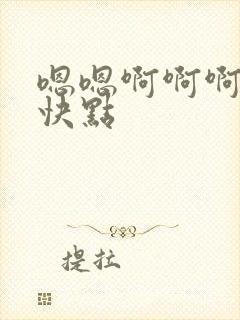 嗯嗯啊啊啊
快點
提拉